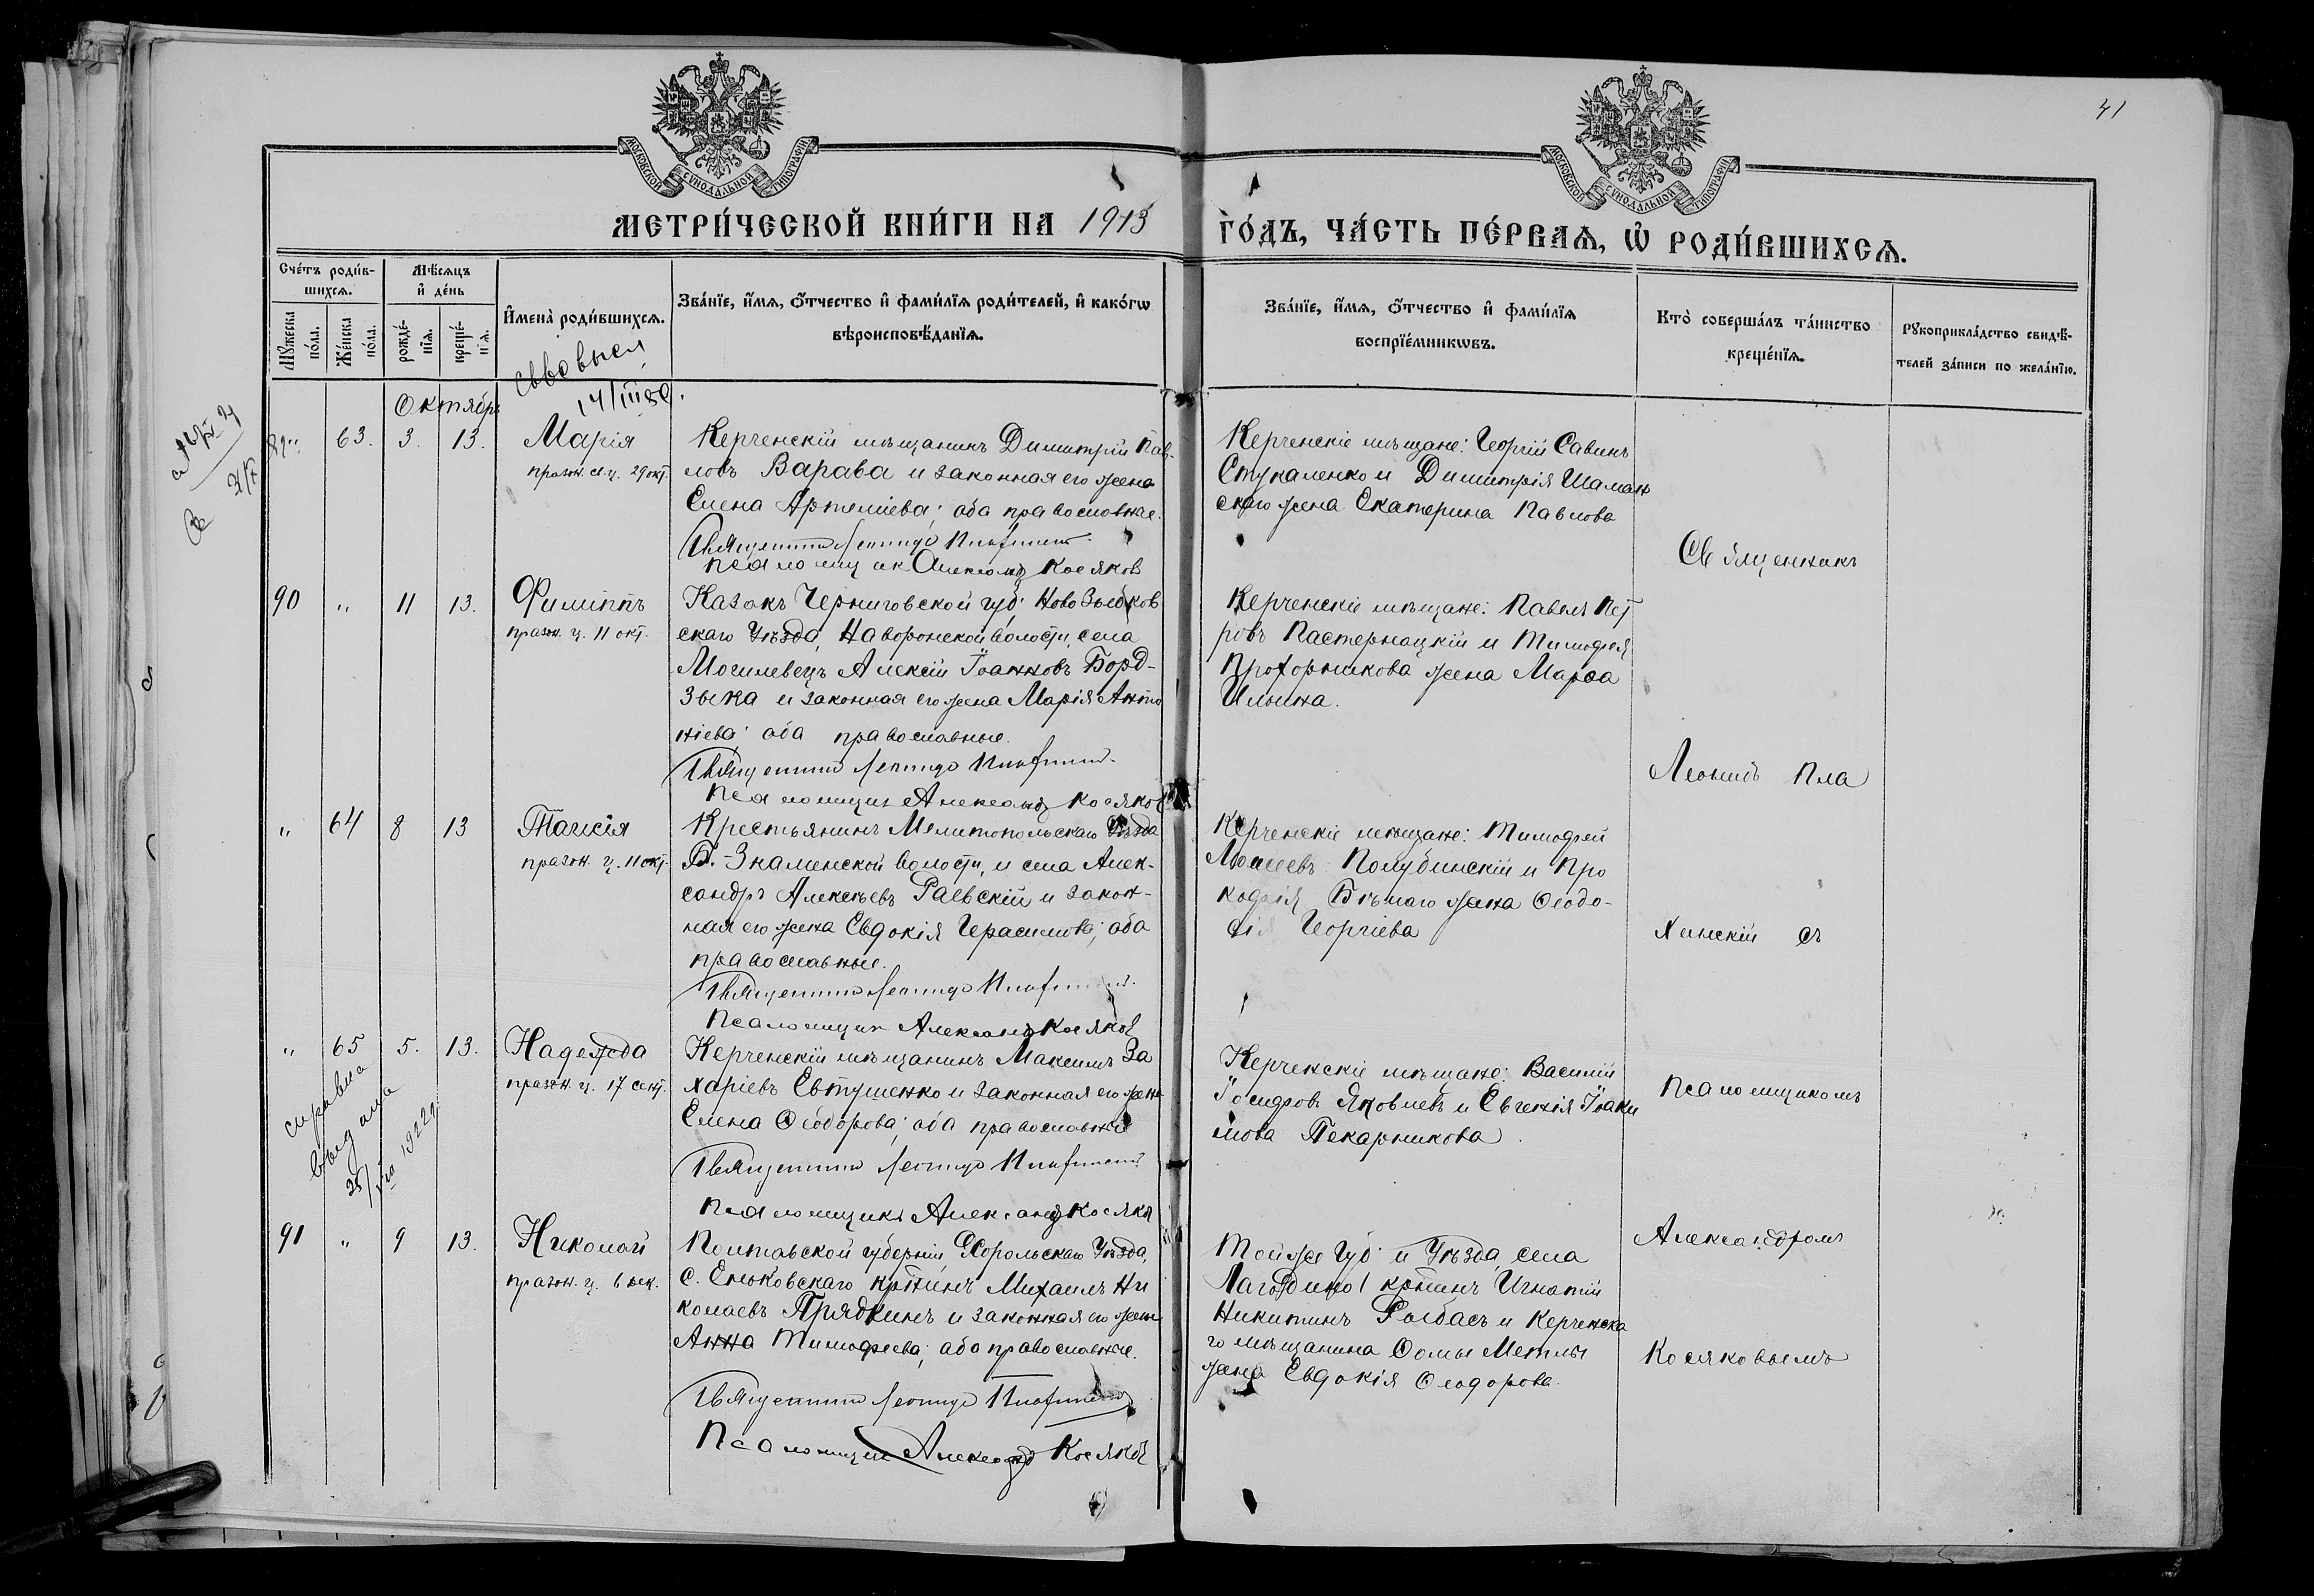 41
МОСКОВСКОЙ СѴНОДАЛЬНОЙ ТИПОГРАФІИ
МОСКОВСКОЙ СѴНОДАЛЬНОЙ ТИПОГРАФІИ
МЕТРИ́ЧЕСКОЙ КНИ́ГИ НА 1913 ГО́ДЪ, ЧА́СТЬ ПЕ́РВАѦ, Ѡ҆ РОДИ́ВШИХСѦ.
Сче́тъ роди́в-
шихсѧ.
Мꙋ́жеска по́ла.
Же́нска по́ла.
Мѣ́сѧцъ
и҆ де́нь
рожде́-
нїѧ.
креще́-
нїѧ.
И҆мена̀ роди́вшихсѧ.
Зва́нїе, и҆́мѧ, ѻ҆́тчество и҆ фами́лїѧ роди́телей, и҆ како́гѡ
вѣроисповѣ́данїѧ.
Зва́нїе, и҆́мѧ, ѻ҆́тчество и҆ фами́лїѧ
воспрїе́мникѡвъ.
Кто̀ соверша́лъ та́инство
креще́нїѧ.
Рꙋкоприкла́дство свидѣ́-
телей за́писи по жела́нїю.
Октябрь
63. 3. 13.
Марія
празн. св. ц. 29 окт.
Керченскій мѣщанинъ Димитрій Пав-
ловъ Варава и законная его жена
Елена Артеміева; оба православные.
Священникъ Леонидъ
Псаломщик Александ Косяков
Керченскіе мѣщане: Георгій Савинъ
Стукаленко и Димитрія Шаман
скаго жена Екатерина Павлова
90 " 11 13.
Филиппъ
празн. ц. 11 окт.
Казакъ Черниговской губ. Новозыбков
скаго Уѣзда, Наворонской волости, села
Могилевецъ Алексій Іоанновъ Борд-
зыка и законная его жена Марія Анто
ніева; оба православные.
Священникъ Леонидъ
Псаломщик Александ Косяков
Керченскіе мѣщане: Павелъ Пет
ровъ Пастернацкій и Тимофея
Прохорникова жена Марѳа
Ильина.
" 64 8 13
Таисія
празн. ц. 11 окт.
Крестьянинъ Мелитопольскаго Уѣзда
Б.-Знаменской волости, и села Алек-
сандръ Алексѣевъ Раевскій и закон-
ная его жена Евдокія Герасимова; оба
православные.
Священникъ Леонидъ
Псаломщик Александ Косяков
Керченскіе мѣщане: Тимофей
Моисеевъ Полубинскій и Про
кофія Бѣлаго жена Ѳеодо-
сія Георгіева
" 65 5. 13.
Надежда
празн. ц. 17 сент.
справка
выдана
25/VII 1922 г.
Керченскій мѣщанинъ Максимъ За
харіевъ Евтушенко и законная его жена
Елена Ѳеодорова; оба православные
Священникъ Леонидъ
Псаломщикъ Александ Косяков
Керченскіе мѣщане: Василій
Іосифовъ Яковлевъ и Евгенія Іоаки
мова Пекарникова.
91 " 9 13.
Николай
празн. ц. 6 дек.
Полтавской губерніи, Хорольскаго Уѣзда,
с. Еньковскаго кр-нинъ Михаилъ Ни
колаевъ Прядкинъ и законная его жена
Анна Тимофеева; оба православные.
Священникъ Леонидъ
Псаломщикъ Александ Косяков
Той же Губ. и Уѣзда, села
кр-нинъ Игнатій
Никитинъ Рыбасъ и Керченска
го мѣщанина Ѳомы Метлы
жена Евдокія Ѳеодорова.
Священникъ
Леонидъ Пла
хинскій съ
псаломщикомъ
Александромъ
Косяковымъ